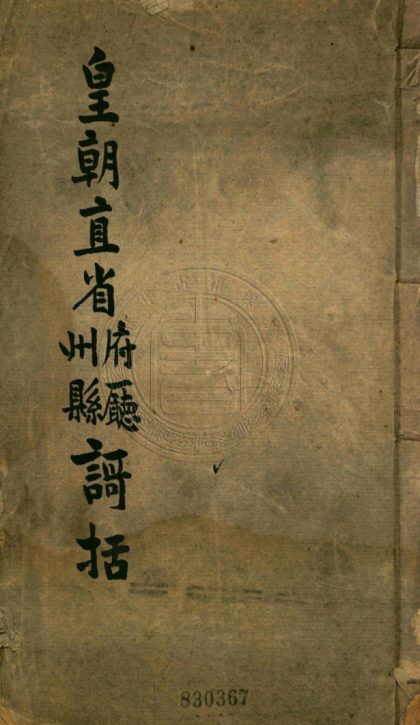 皇朝直省府廳州縣謌括
830367